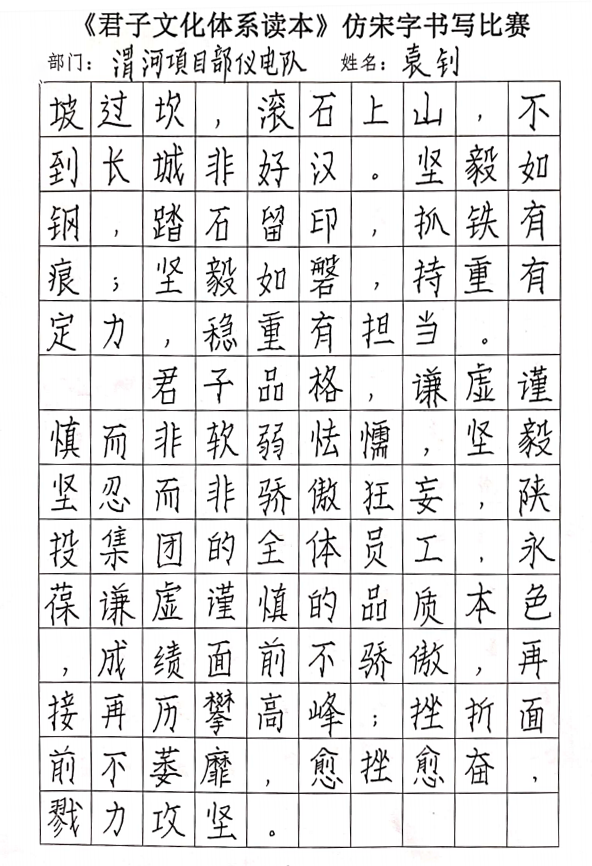 《君子文化体系读本》仿宋字书写比赛
部门：渭河項目部仪电队 姓名：袁钊
坡过坎，滚石上山，不
到长城非好汉。坚毅如
钢，踏石留印，抓铁有
痕；坚毅如磐，持重有
定力，稳重有担当。
君子品格，谦虚谨
慎而非软弱怯懦，坚毅
坚忍而非骄傲狂妄，陕
投集团的全体员工，永
葆谦虚谨慎的品质本色
，成绩面前不骄傲，再
接再历攀高峰；挫折面
前不萎靡，愈挫愈奋，
戮力攻坚。